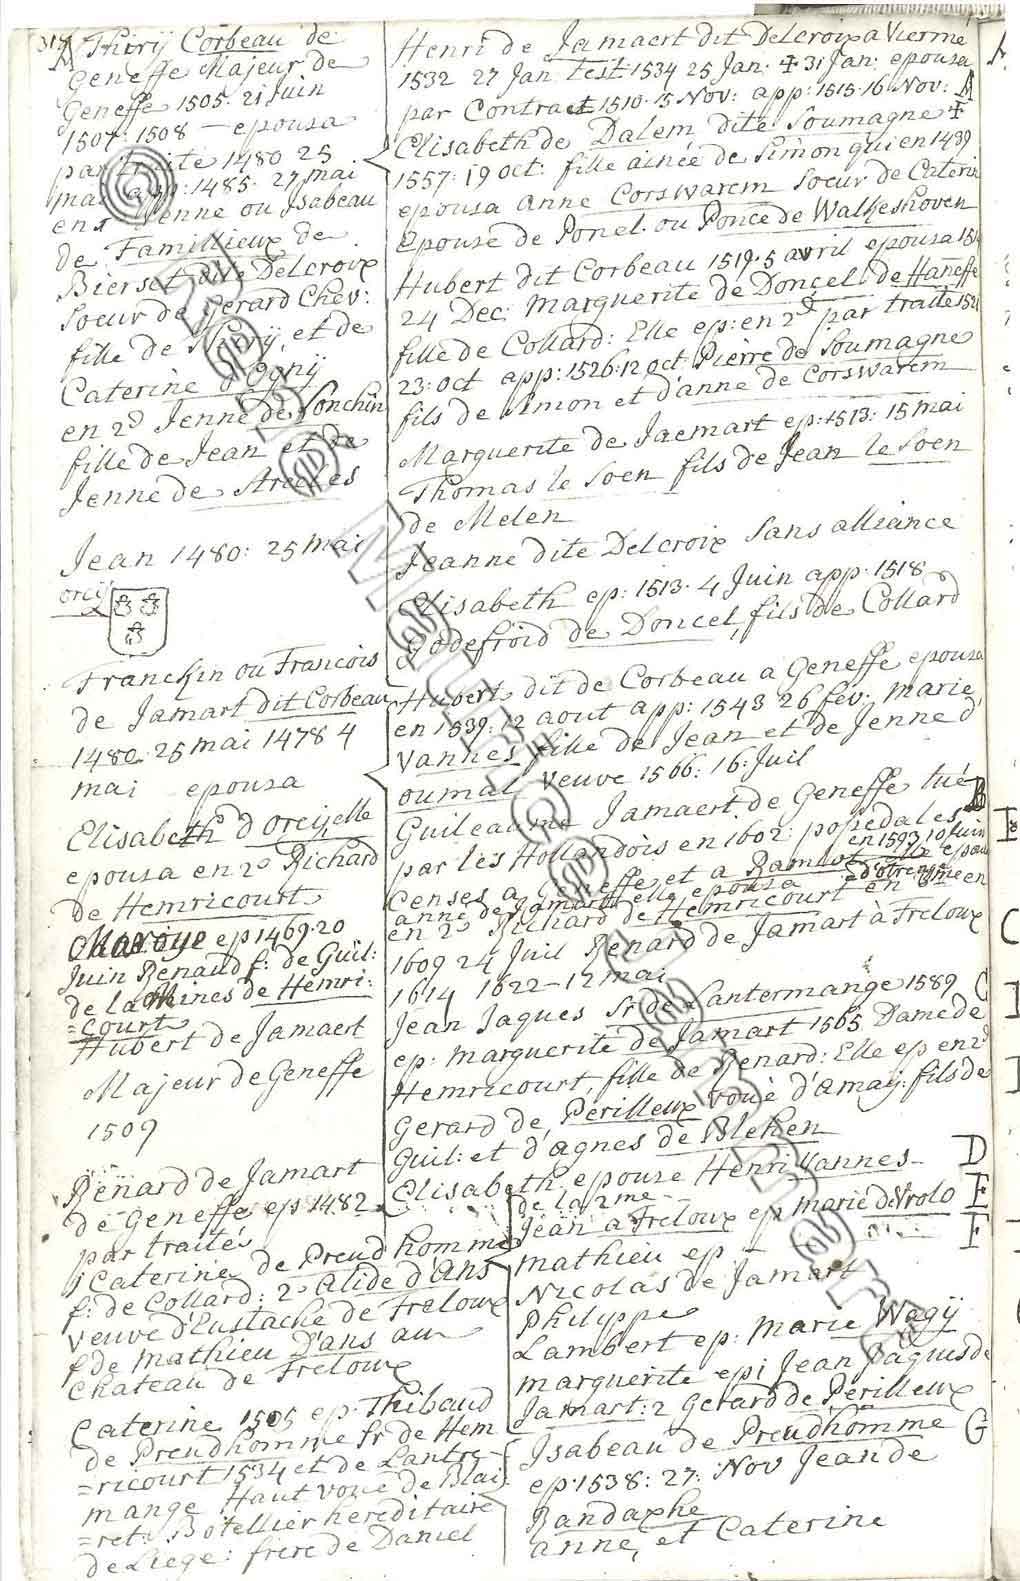 318
A Thirÿ Corbeau de
Geneffe Majeur de
Geneffe 1505. 21 Juin
1507. 1508 — epousa
par traité 1480 25
mai app: 1485. 27 mai
en 1 Jenne ou Isabeau
de Famillieux de
Bierset dite Delcroix
Soeur de Gerard Chev:
fille de Thirÿ, et de
Caterine d'Ognÿ
en 2º Jenne de Lonchin
fille de Jean et de
Jenne de
Jean 1480: 25 mai
oreÿ
Franckin ou Francois
de Jamart dit Corbeau
1480. 25 mai 1478 4
mai epousa
Elisabeth d'oreÿ, elle
epousa en 2º Richard
de Hemricourt
Maroye ep 1469. 20
Juin Renaud f: de Guil:
de la Mines de Hemri:
=court
Hubert de Jamaert
Majeur de Geneffe
1509
Renard de Jamart
de Geneffe ep 1482
par traités
1 Caterine de Preudhomme
f: de Collard: 2º alide d'Ans
veuve d'Eustache de Freloux
f de mathieu D'ans au
Chateau de Freloux
Caterine 1505 ep. Thibaud
de Preudhomme Sr de Hem
=ricourt 1534 et de Lantre-
mange Haut voué de Blai
=ret: Botellier hereditaire
de Liege: frere de Daniel
Henri de Jamaert dit Delcroix a Vieme
1532 27 Jan test 1534 25 Jan. + 31 Jan: epousa
par Contract 1510. 15 Nov: app: 1515. 16 Nov: A
Elisabeth de Dalem dite Soumagne +
1557: 19 oct: fille ainée de Simon qui en 1439
epousa anne Corswarem Soeur de Caterin
Epouse de Ponel. ou Ponce de Walheshoven
Hubert dit Corbeau 1519. 5 avril epousa 151
24 Dec: Marguerite de Doncel de Haneffe
fille de Collard: Elle ep: en 2d par traité 152
23: oct app: 1526: 12 oct Pierre de Soumagne
fils de Simon et d'anne de Corswarem
Marguerite de Jaemart ep: 1513: 15 mai
Thomas le Soen fils de Jean le Soen
de Melen
Jeanne dite Delcroix Sans alliance
Elisabeth ep: 1513. 4 Juin app. 1518
Godefroid de Doncel, fils de Collard
Hubert dit de Corbeau a Geneffe epousa
en 1539: 12 aout app: 1543 26 fev: marie
Vannes fille de Jean et de Jenne d'
oumal veuve 1566: 16: Juil
Guileaume Jamaert de Geneffe tué B
par les Hollandois en 1602: possedales
Censes a Geneffe et a en 1593 10 Juin
anne de Jamart elle epousa
en 2º Richard de Hemricourt en 3me en
1609 24 Juil Renard de Jamart à Freloux
1614 1622-12 mai
Jean Jaques Sr de Lantermange 1589 C
ep: marguerite de Jamart 1565 Dame de
Hemricourt, fille de Renard: Elle ep en 2º
Gerard de Perilleux voué d'amaÿ: fils de
Guil: et d'agnes de Blehen
Elisabeth epouse Henri Vannes D
de la 2me
Jean a Freloux ep marie de Vrolo E
mathieu ep — F
Nicolas de Jamart
Philippe
Lambert ep: marie Wagÿ
marguerite ep: 1 Jean Jaques de
Jamart: 2 Gerard de Perilleux
Isabeau de Preudhomme G
ep. 1538: 27: Nov Jean de
Randaxhe
anne, et Caterine